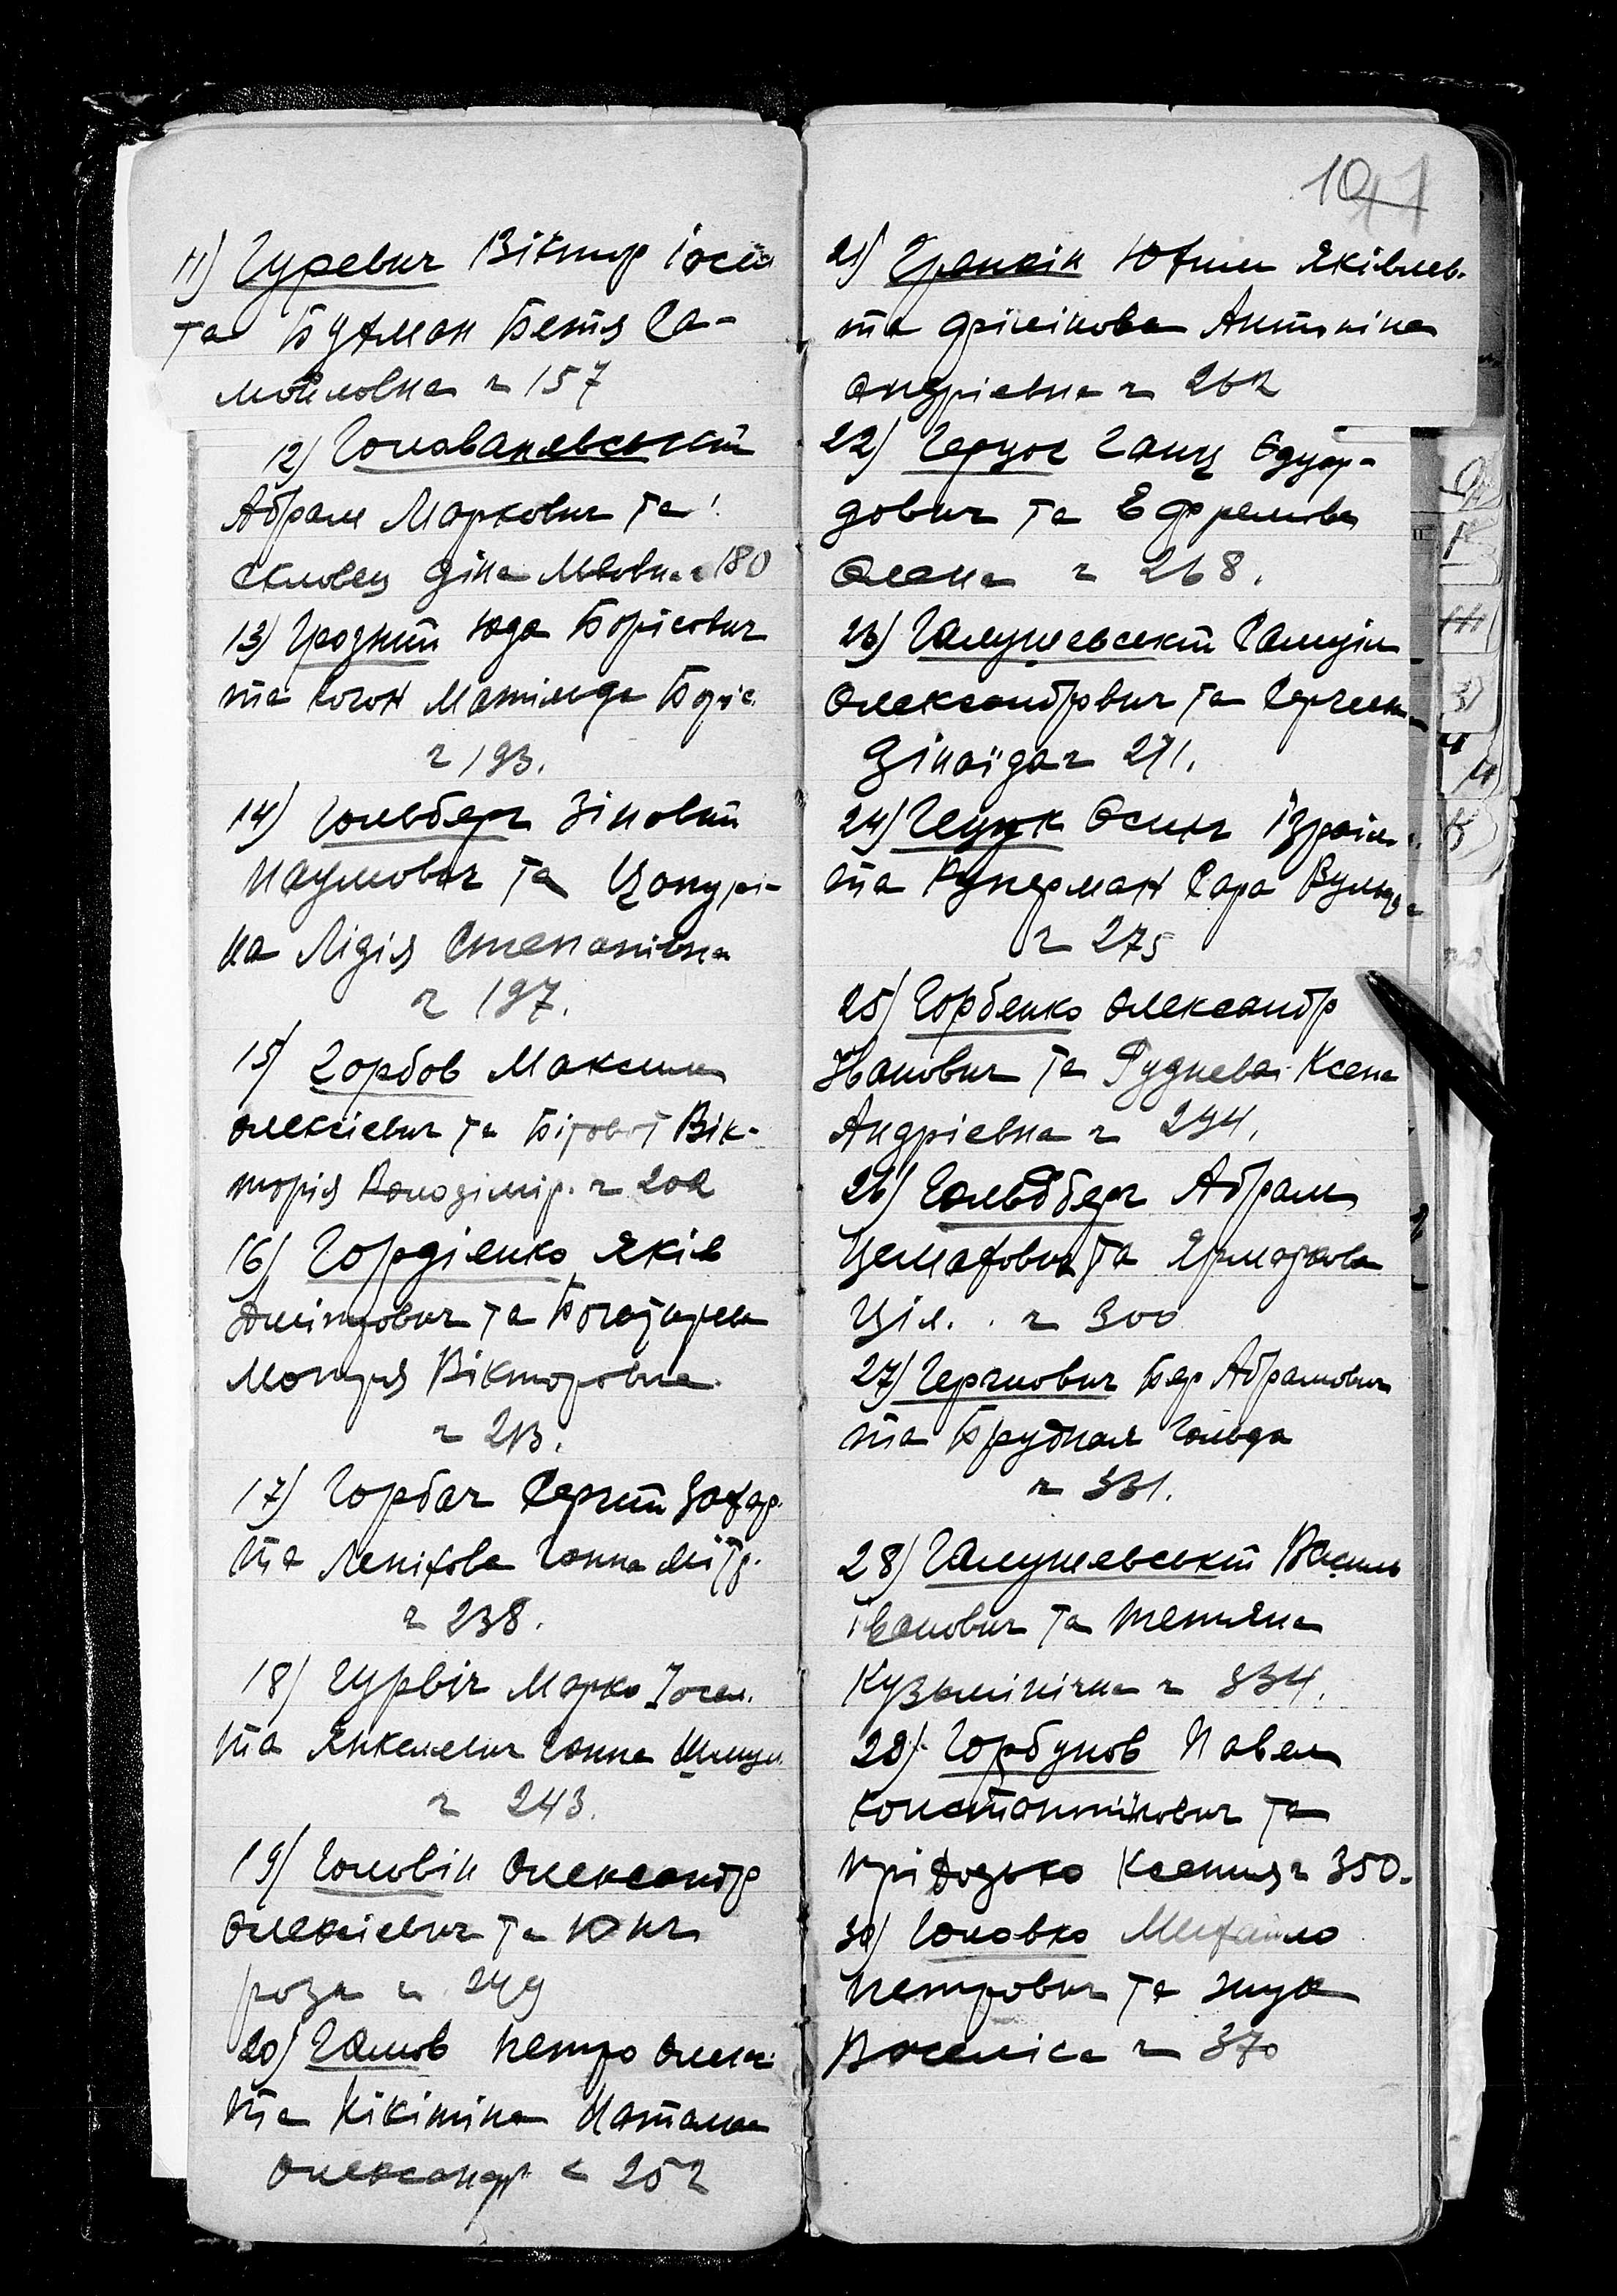 11) Гуревич Віктор Іосип
та Бухман Бетя Са-
мойловна г 157
12) Голованевський
Абрам Маркович та
Діна Львівна г 180
13) Гродзкий Юда Борісович
та Коган Матільда Боріс.
г 193.
14) Гольберг Зіновій
Наумович та Цопурі-
на Лідія Степанівна
г 197.
15) Горбов Максим
Олексієвич та Вік-
торія Володімір. г 202
16) Гордіенко Яків
Дмітрович та Богатирева
Марія Вікторовна.
г 213.
17) Горбач Сергій Захар.
та Ганна Дмітр.
г 238.
18) Гурвіч Марко Іосел.
та Янкелевич Ганна Шмул.
г 243.
19) Головін Олександр
Олексієвич та Юнг
Роза г 249
20) Галов Петро Олекс.
та Кікитіна Наталя
Олександр г 252
101
21) Юхим Яківлев.
та Антоніна
Андрієвна г 262
22) Герцог Ганц Едуар-
дович та Ефремова
Олена г 268.
23) Галушевський Самуїл
Олександрович та
Зінаїда г 271.
24) Гецик Осип Ізраїл.
та Куперман Сара Вульф.
г 275
25) Горбенко Олександр
Іванович та Руднева Ксена
Андрієвна г 294.
26) Гольдберг Абрам
Цемахович та Ярмаркова
Ціл. г 300
27) Герчнович Бер Абрамович
та Брудная Гольда
г 331.
28) Галушевський Василь
Іванович та Тетяна
Кузьмінічна г 334.
29) Горбунов Павел
Константінович та
Прідозько Ксенія г 350.
30) Головко Михайло
Петрович та Жук
Василіса г 370